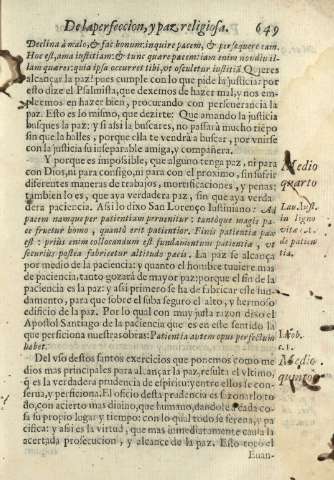 De la perfeccion, y paz religiosa. 649
Declina à malo, & fac bonum: inquire pacem, & persequere eam.
Hoc est, ama iustitiam: & tunc quære pacem: iam enim non diu il-
lam quæres: quia ipsa occurret tibi, vt osculetur iustitiã. Quieres
alcançar la paz? pues cumple con lo que pide la justicia: por
esto dize el Psalmista, que dexemos de hazer mal, y nos em-
pleemos en hazer bien, procurando con perseuerancia la
paz. Esto es lo mismo, que dezirte: Que amando la justicia
busques la paz: y si assi la buscares, no passarà mucho tiẽpo
sin que lo halles, porque ella te vendrà a buscar, por vnirse
con la justicia su inseparable amiga, y compañera.
Y porque es impossible, que alguno tenga paz, ni para
con Dios, ni para consigo, ni para con el proximo, sin sufrir
diferentes maneras de trabajos, mortificaciones, y penas:
tambien lo es, que aya verdadera paz, sin que aya verda
dera paciencia. Assi lo dixo San Lorenço Iustiniano: Ad
pacem namque per patientiam peruenitur: tantòque magis pa-
ce fruetur homo, quantò erit patientior. Finis patientiæ pax
est: priùs enim collocandum est fundamentum patientiæ, vt
securiùs postea fabricetur altitudo pacis. La paz se alcança
por medio de la paciencia: y quanto el hombre tuuiere mas
de paciencia, tanto gozarà de mayor paz: porque el fin de la
paciencia es la paz: y assi primero se ha de fabricar este fun-
damento, para que sobre el suba seguro el alto, y hermoso
edificio de la paz. Por lo qual con muy justa razon dixo el
Apostol Santiago de la paciencia que es en este sentido la
que perficiona nuestras obras: Patientia autem opus perfectum
habet.
Del vso destos santos exercicios que ponemos como me
dios mas principales para alcançar la paz, resulta el vltimo,
q̃ es la verdadera prudencia de espiritu: y entre ellos se con-
serua, y perficiona. El oficio desta prudencia es sazonarlo to
do, con acierto mas diuino, que humano, dandole a cada co-
sa su propio lugar y tiempo: con lo qual todo se serena, y pa
cifica: y assi es la virtud, que mas inmediatamente causa la
acertada prosecucion, y alcance de la paz. Esto toco el
Euan-
Medio
quarto
Lau. Iust.
in ligno
vitæ.
de patien
tia.
Iacob.
1.
Medio
quinto